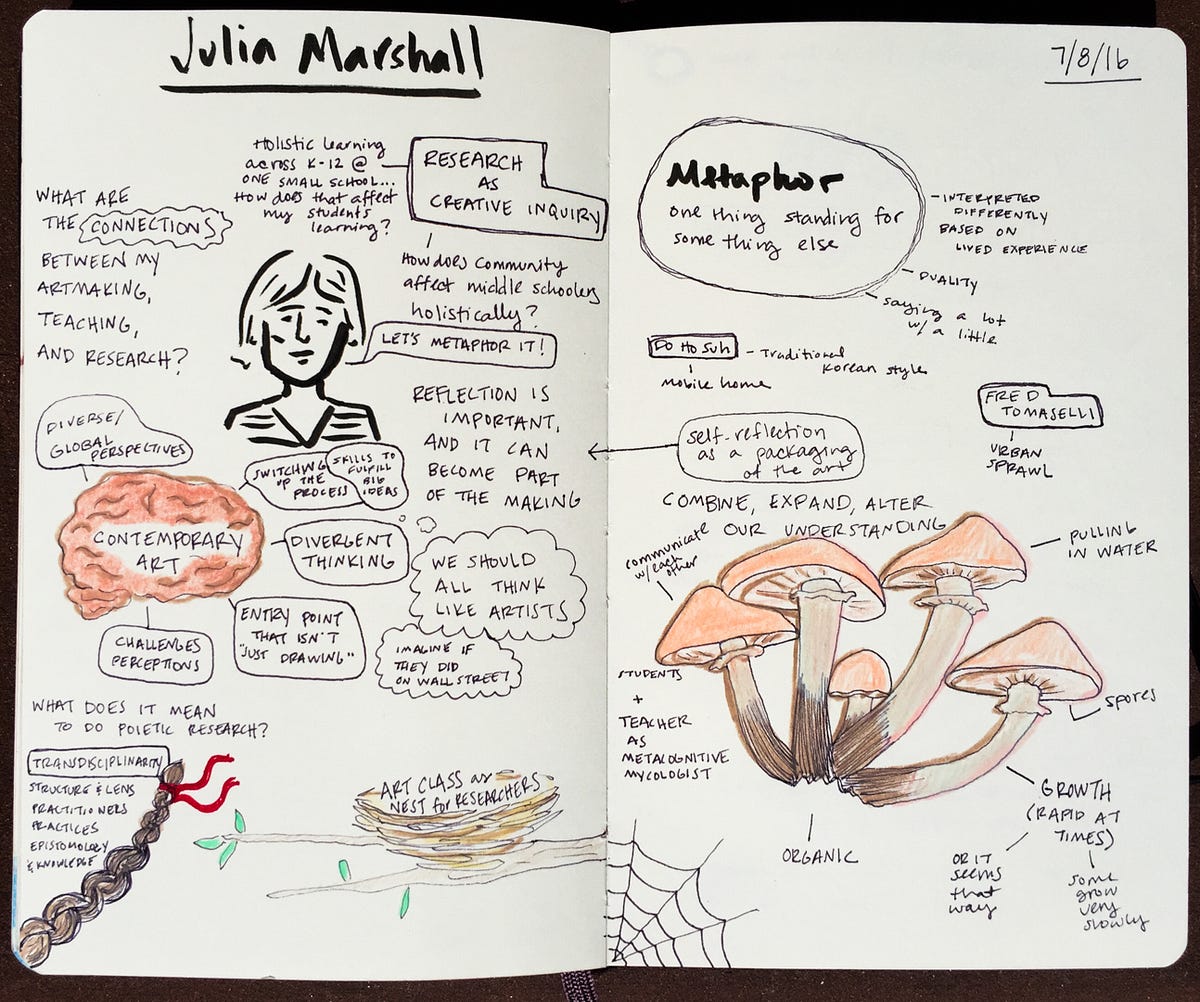 Julia Marshall
7/8/16
Holistic learning
across K-12 @
ONE SMALL SCHOOL...
How does that affect
my students
learning?
RESEARCH
AS
CREATIVE INQUIRY
WHAT ARE
THE CONNECTIONS
BETWEEN MY
ARTMAKING,
TEACHING,
AND RESEARCH?
How does community
affect middle schoolers
holistically?
LET'S METAPHOR IT!
REFLECTION IS
IMPORTANT,
AND IT CAN
BECOME PART
OF THE MAKING
DIVERSE/
GLOBAL
PERSPECTIVES
SWITCHING
UP THE
PROCESS
SKILLS TO
FULFILL
BIG
IDEAS
CONTEMPORARY
ART
DIVERGENT
THINKING
WE SHOULD
ALL THINK
LIKE ARTISTS
ENTRY POINT
THAT ISN'T
"JUST DRAWING"
IMAGINE IF
THEY DID
ON WALL STREET
CHALLENGES
PERCEPTIONS
WHAT DOES IT MEAN
TO DO POIETIC RESEARCH?
TRANSDISCIPLINARITY
STRUCTURE & LENS
PRACTITIONERS
PRACTICES
EPISTOMOLOGY
& KNOWLEDGE
ART CLASS as
NEST for RESEARCHERS
Metaphor
one thing standing for
something else
INTERPRETED
DIFFERENTLY
BASED ON
LIVED EXPERIENCE
DUALITY
saying a lot
w/ a little
DO HO SUH
- Traditional
Korean style
mobile home
FRED
TOMASELLI
URBAN
SPRAWL
self-reflection
as a packaging
of the art
COMBINE, EXPAND, ALTER
OUR UNDERSTANDING
communicate
w/ each
other
PULLING
IN WATER
STUDENTS
+
TEACHER
AS
METACOGNITIVE
MYCOLOGIST
spores
GROWTH
(RAPID AT
TIMES)
ORGANIC
OR IT
seems
that
way
some
grow
very
slowly